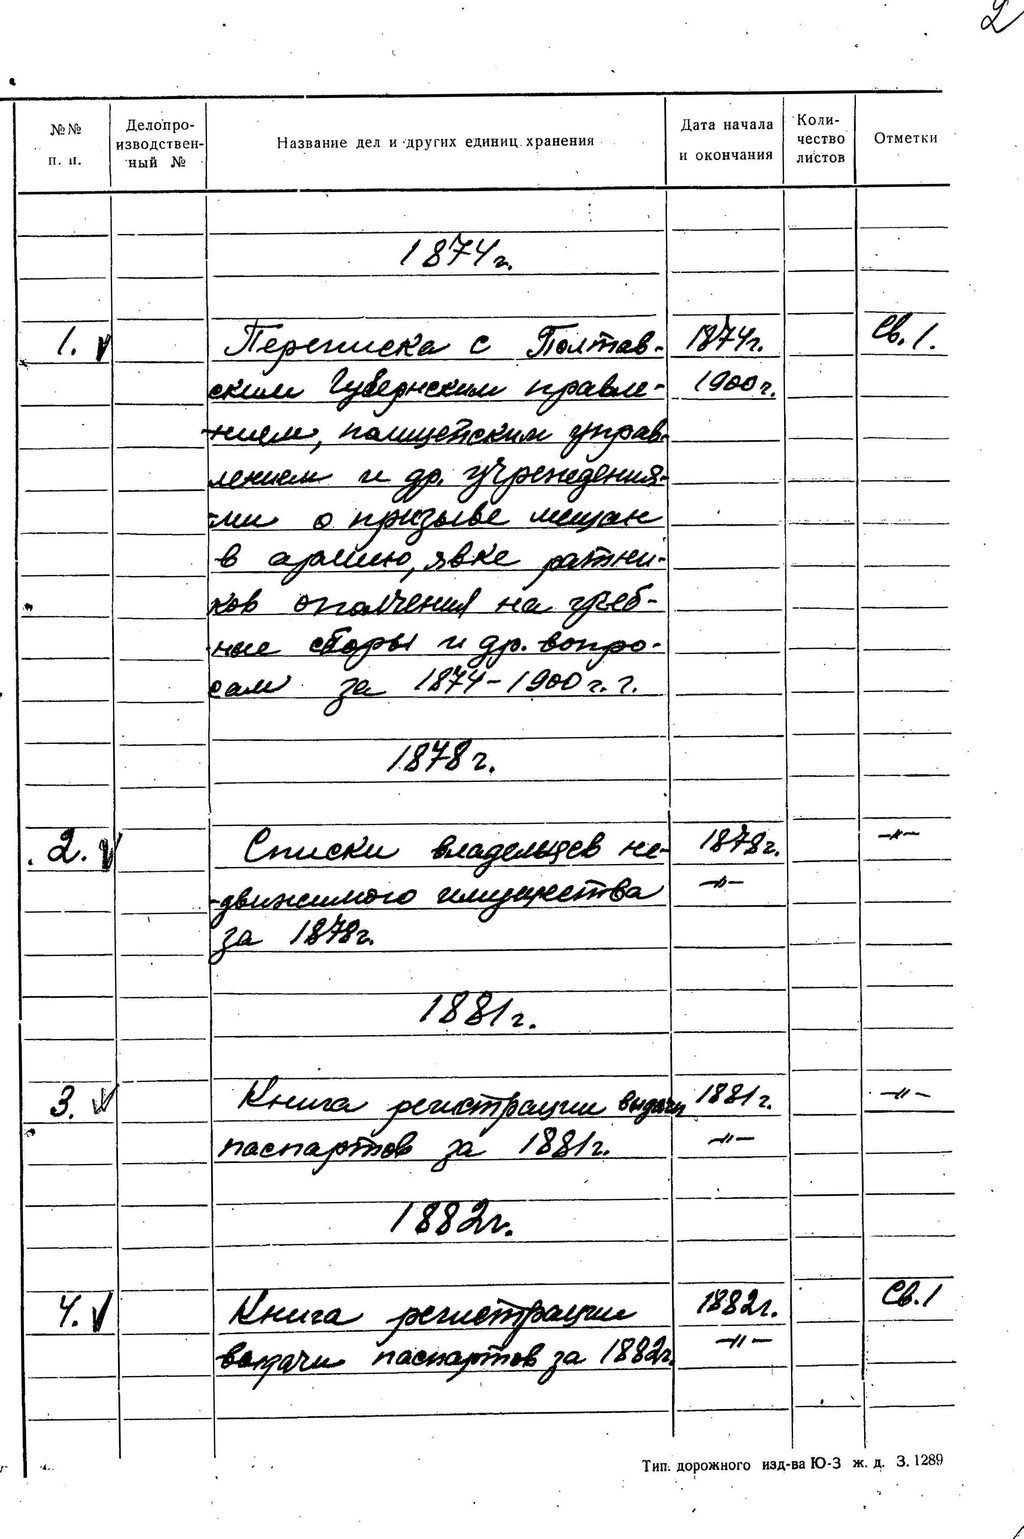 2
№№ п. п.
Делопроизводственный №
Название дел и других единиц хранения
Дата начала и окончания
Количество листов
Отметки
1874г.
1. Переписка с Полтав- 1874г. Св. 1.
ским Губернским правле- 1900г.
нием, полицейским управ-
лением и др. учреждения-
ми о призыве мещан
в армию, явке ратни-
ков ополчения на учеб-
ные сборы и др. вопро-
сам за 1874-1900г.г.
1878г.
2. Списки владельцев не- 1878г. -"-
движимого имущества -"-
за 1878г.
1881г.
3. Книга регистрации выдачи 1881г. -"-
паспартов за 1881г. -"-
1882г.
4. Книга регистрации 1882г. Св. 1
выдачи паспартов за 1882г. -"-
Тип. дорожного изд-ва Ю-З ж. д. З. 1289